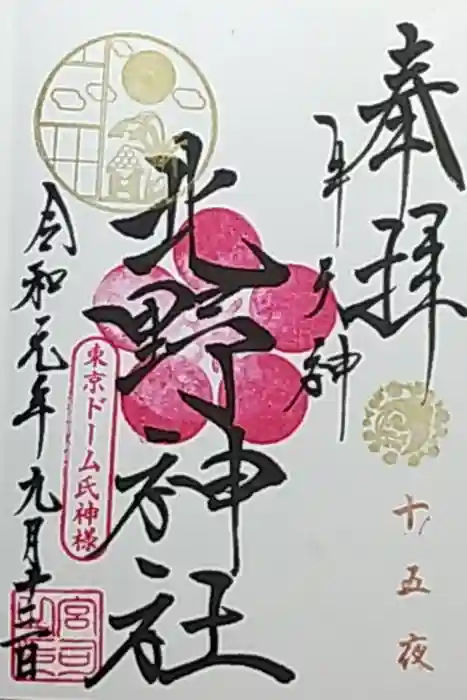 奉拝
牛天神
北野神社
令和元年九月十三日
東京ドーム氏神様
十五夜